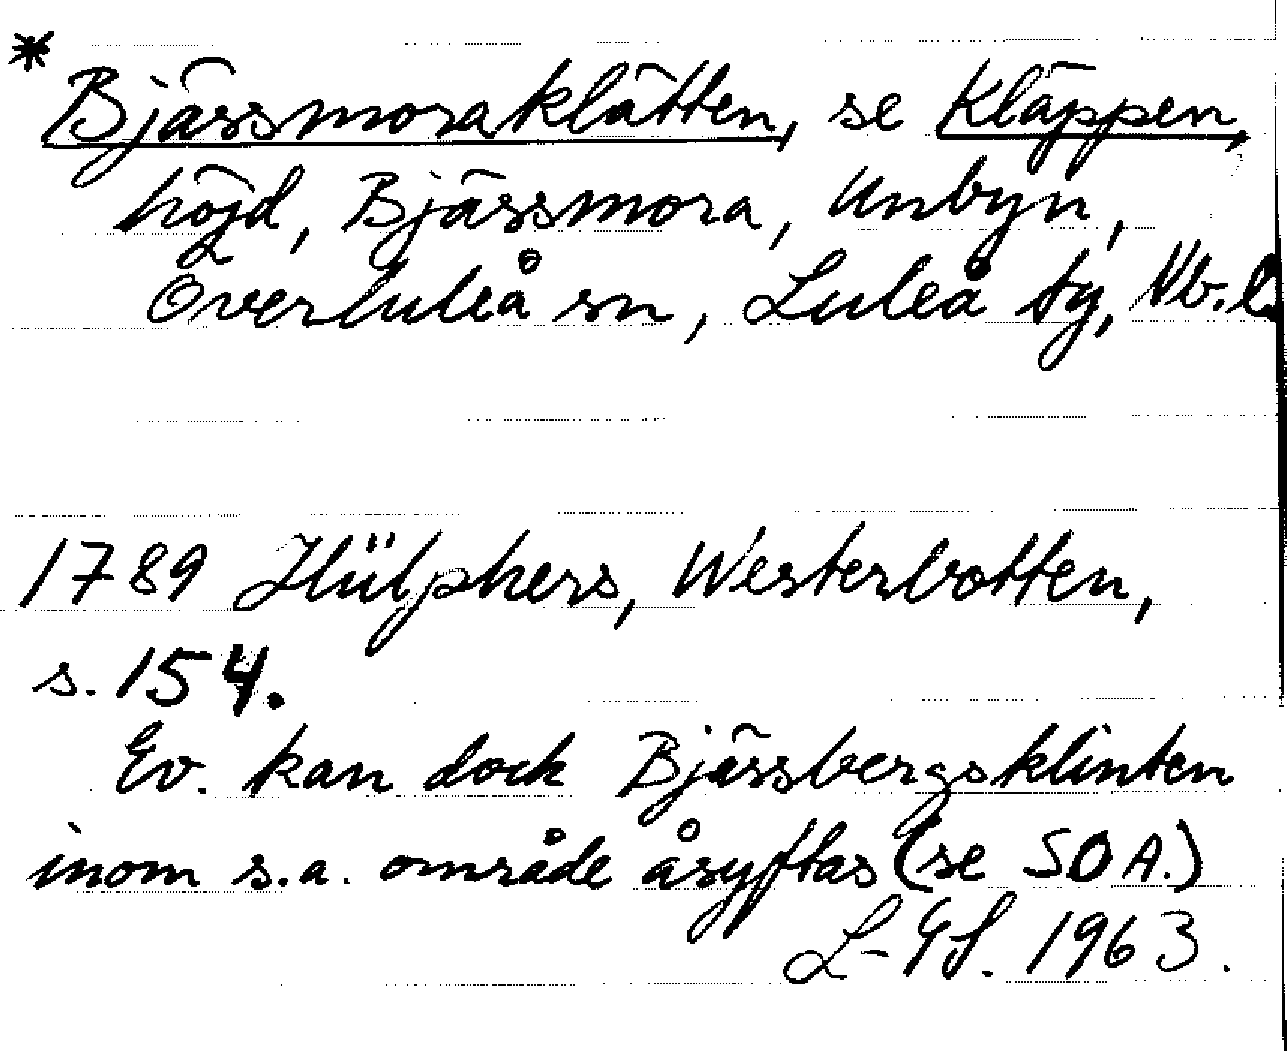 * Bjässmoraklätten, se Kläppen,
höjd, Bjässmora, Unbyn,
Överluleå sn, Luleå tg, Vb.l.
1789 Hülphers, Westerbotten,
s. 154.
Ev. kan dock Bjässbergsklinten
inom s.a. område åsyftas (se SOA.)
L-GS. 1963.